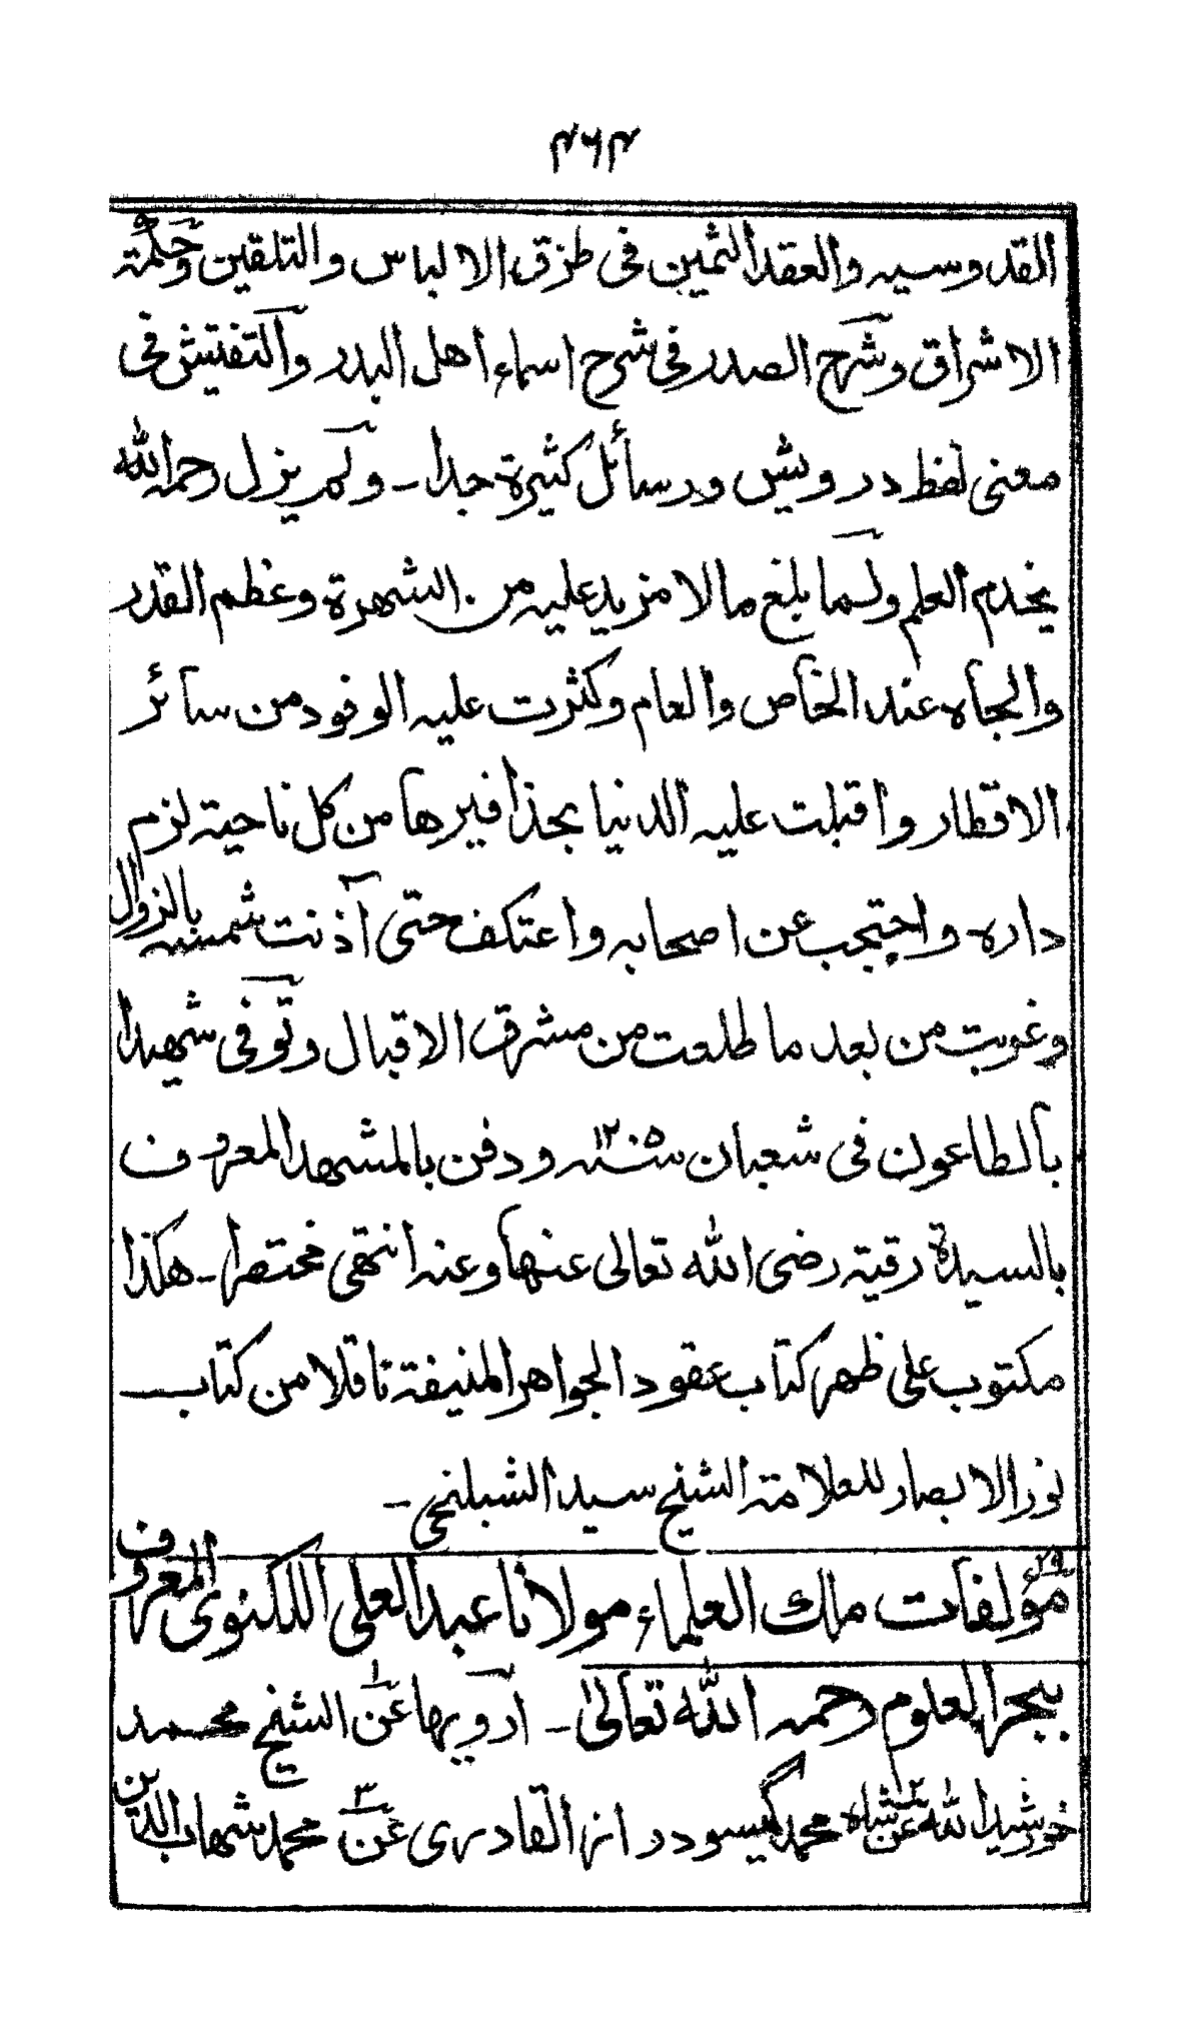 ۴۶۴
القدوسيه والعقد الثمين فى طرق الالباس والتلقين وحكمة
الاشراق وشرح الصدر فى شرح اسماء اهل البدر والتفتيش فى
معنى لفظ درويش ورسائل كثيرة جدا ـ ولم يزل رحمه الله
يخدم العلم ولما بلغ ما لا مزيد عليه من الشهرة وعظم القدر
والجاه عند الخاص والعام وكثرت عليه الوفود من سائر
الاقطار واقبلت عليه الدنيا بحذافيرها من كل ناحية لزم
داره واحتجب عن اصحابه واعتكف حتى آذنت شمسه بالزوال
وغربت من بعد ما طلعت من مشرق الاقبال وتوفى شهيدا
بالطاعون فى شعبان سنه ۱۲۰۵ ودفن بالمشهد المعروف
بالسيدة رقية رضى الله تعالى عنها وعنه انتهى مختصرا ـ هكذا
مكتوب على ظهر كتاب عقود الجواهر المنيفة ناقلا من كتاب
نور الابصار للعلامة الشيخ سيد الشبلنجى ـ
۲۹ مؤلفات ملك العلماء مولانا عبد العلى اللكنوى المعروف
ببحر العلوم رحمه الله تعالىٰ ـ ارويها عن ۱ الشيخ محمد
خورشيد الله عن ۲ شاه محمد گيسو دراز القادرى عن ۳ محمد شهاب الدين بن